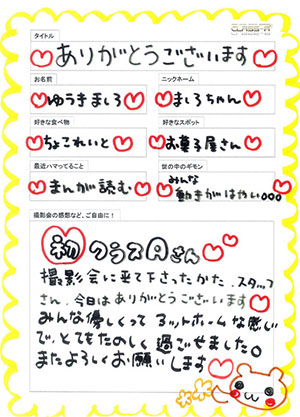 CLASS-A
タイトル
ありがとうございます
お名前
ニックネーム
ゆうきましろ
ましろちゃん
好きな食べ物
好きなスポット
ちょこれいと
お菓子屋さん
最近ハマってること
世の中のギモン
まんが読む
みんな
動きがはやい。。。
撮影会の感想など、ご自由に!
初 クラスAさん
撮影会に来て下さったかた、スタッフ
さん、今日はありがとうございます
みんな優しくって アットホームな感じ
で、とてもたのしく過ごせました。
またよろしくお願いします